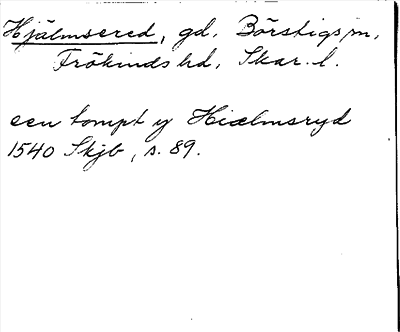 Hjälmsered, gd. Börstigs sn,
Frökinds hd, Skar. l.
een tompt y Hiælmsryd
1540 Skjb, s. 89.